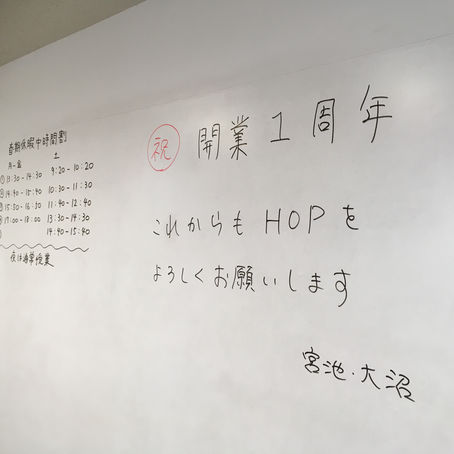 春期休暇中時間割
月-金 土
① 13:30-14:30 9:20-10:20
② 14:40-15:40 10:30-11:30
③ 15:50-16:50 11:40-12:40
④ 17:00-18:00 13:30-14:30
14:40-15:40
夜は通常授業
祝 開業1周年
これからもHOPを
よろしくお願いします
宮池・大沼